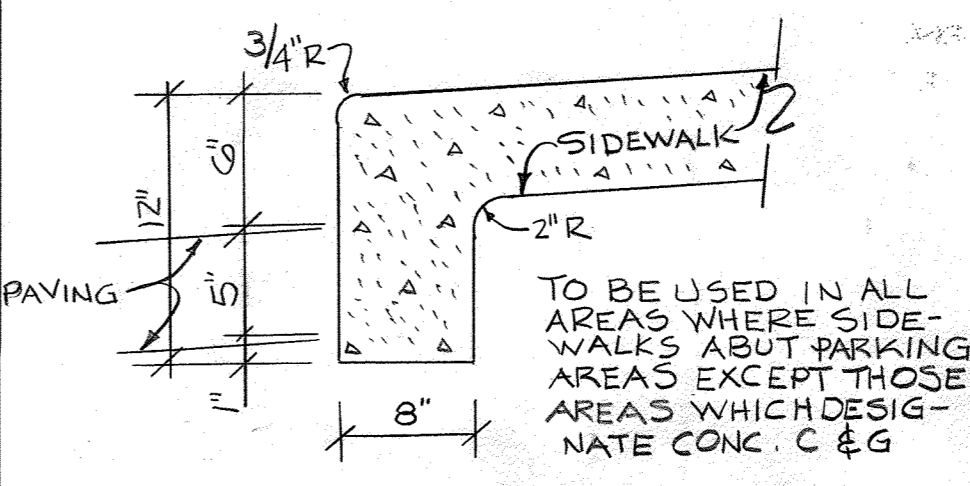 3/4" R
6"
12"
5"
1"
PAVING
SIDEWALK
2" R
8"
TO BE USED IN ALL
AREAS WHERE SIDE-
WALKS ABUT PARKING
AREAS EXCEPT THOSE
AREAS WHICH DESIG-
NATE CONC. C & G